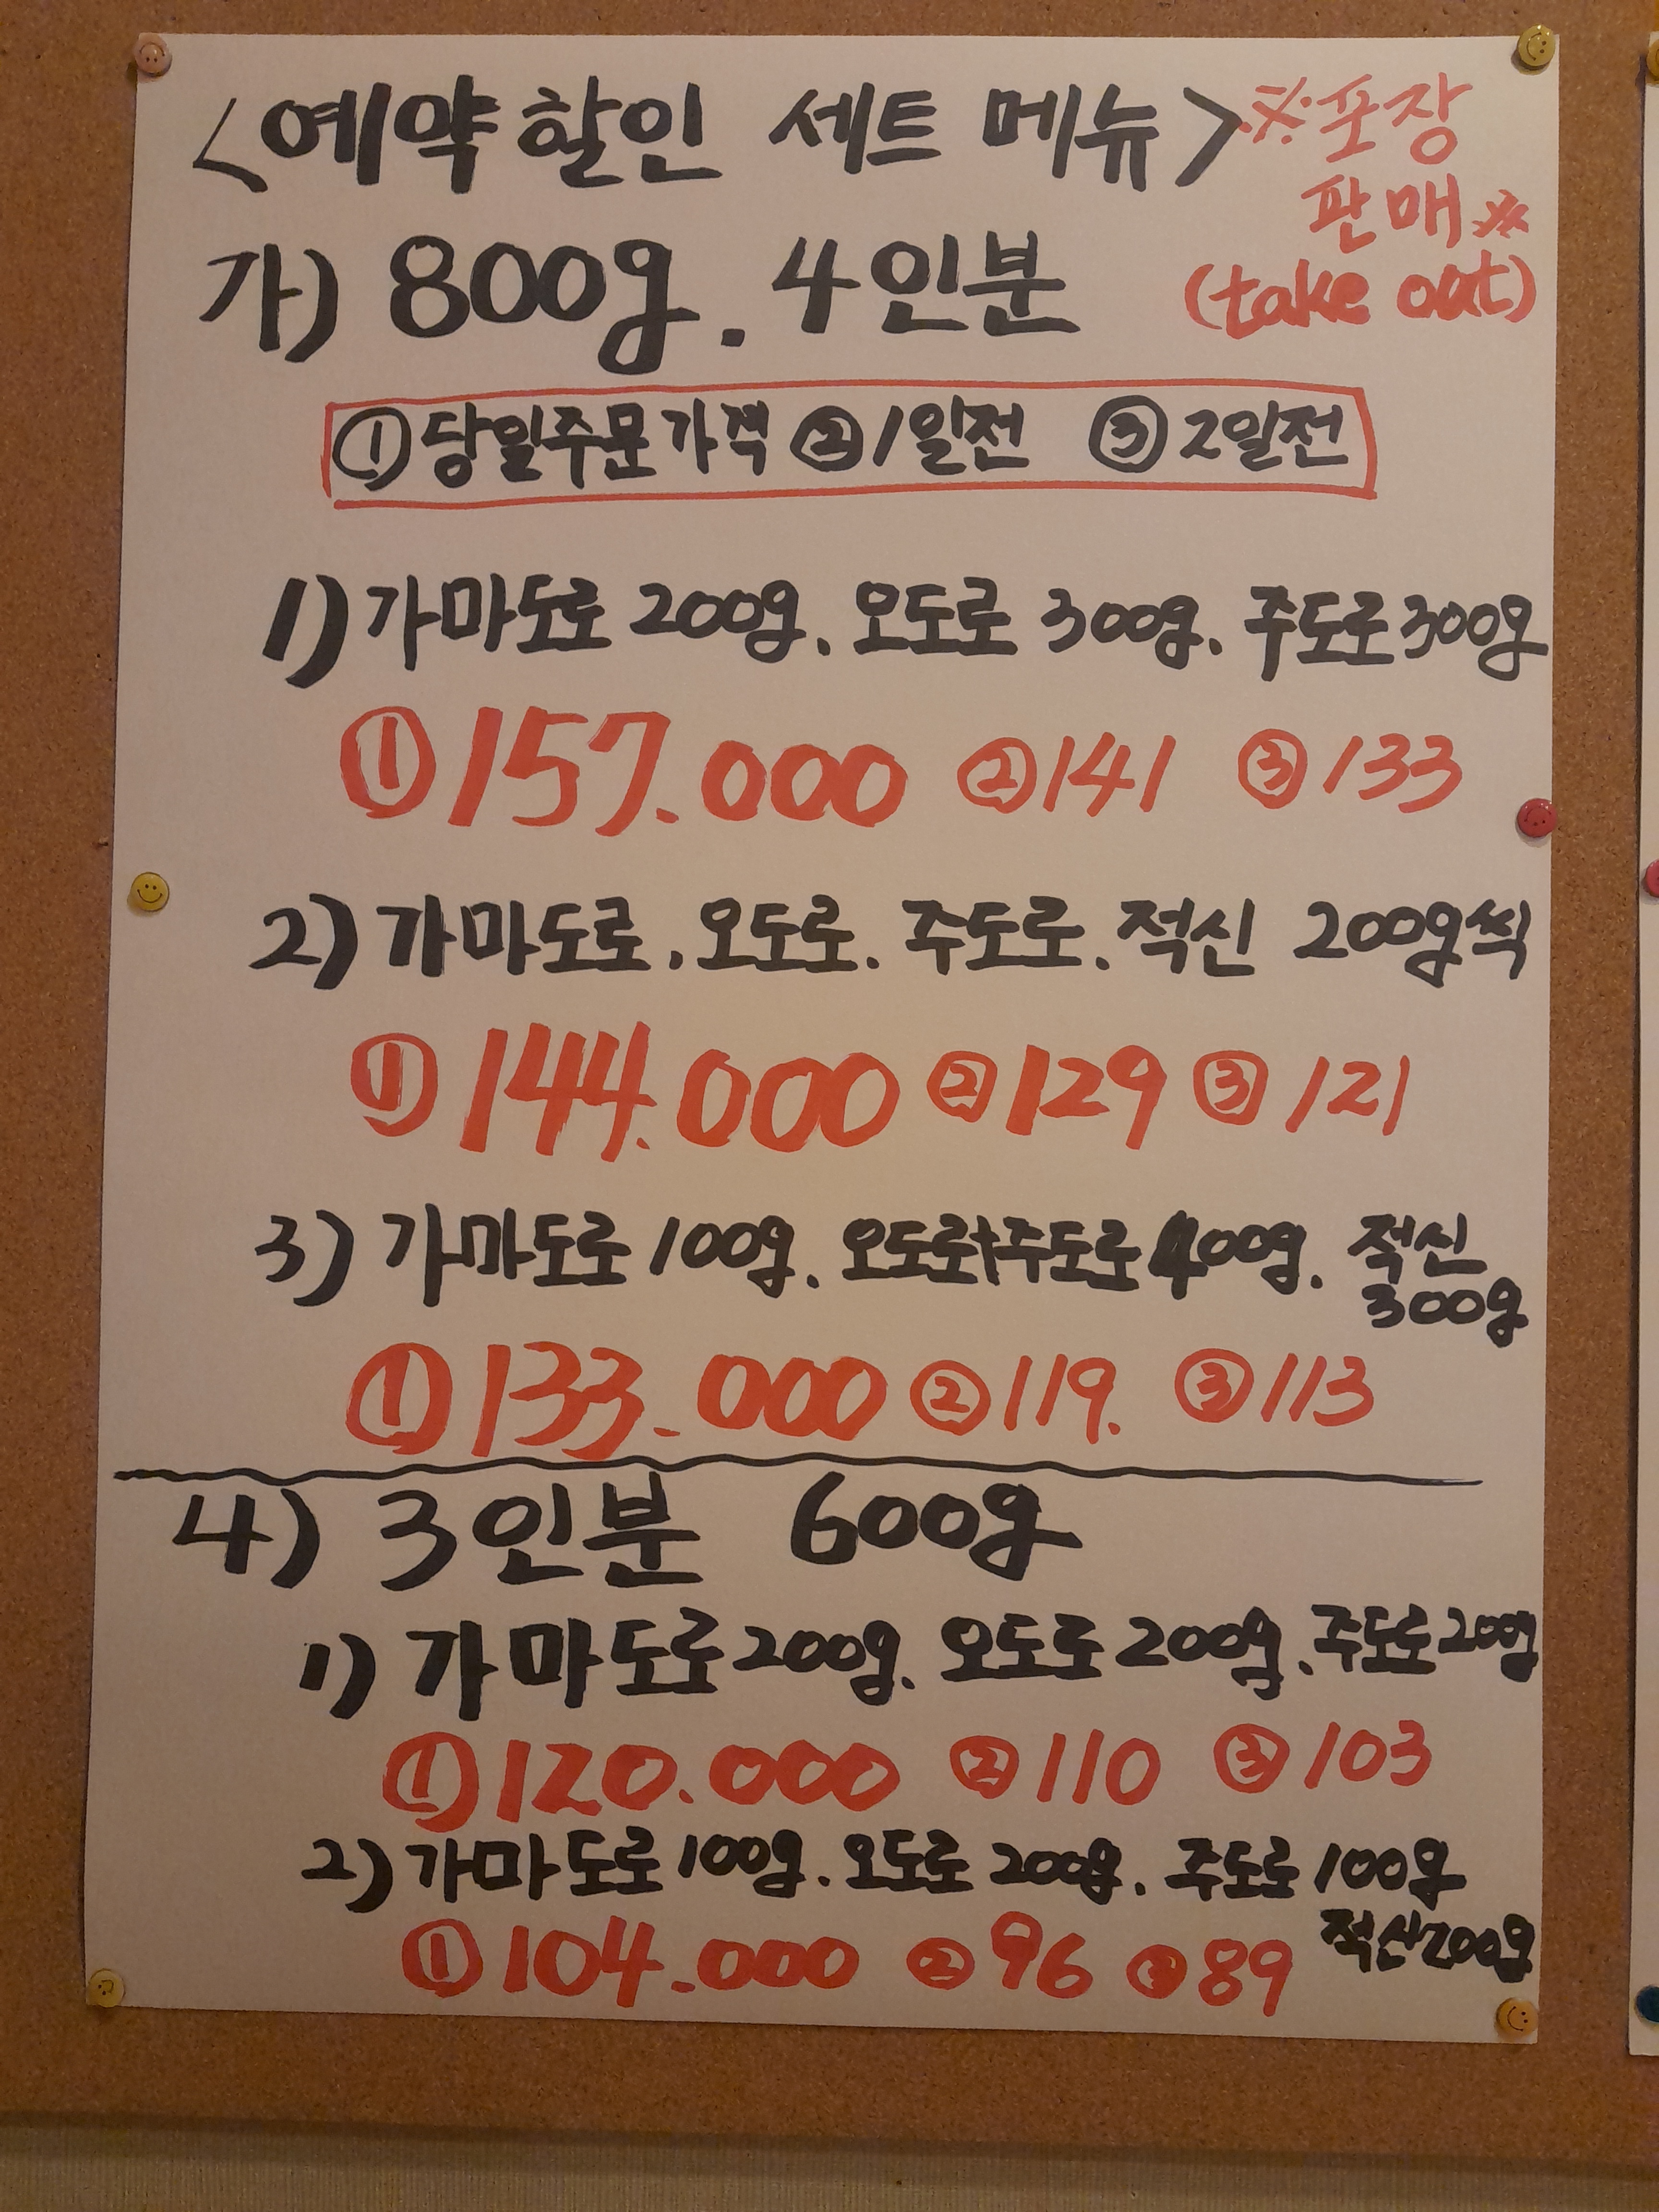 <예약할인 세트 메뉴> ※포장
판매※
(take out)
가) 800g. 4인분
①당일주문가격 ②1일전 ③2일전
1) 가마도로 200g. 오도로 300g. 주도로 300g
①157.000 ②141 ③133
2) 가마도로. 오도로. 주도로. 적신 200g씩
①144.000 ②129 ③121
3) 가마도로 100g. 오도로+주도로 400g. 적신
300g
①133.000 ②119. ③113
4) 3인분 600g
1) 가마도로 200g. 오도로 200g. 주도로 200g
①120.000 ②110 ③103
2) 가마도로 100g. 오도로 200g. 주도로 100g
적신 200g
①104.000 ②96 ③89